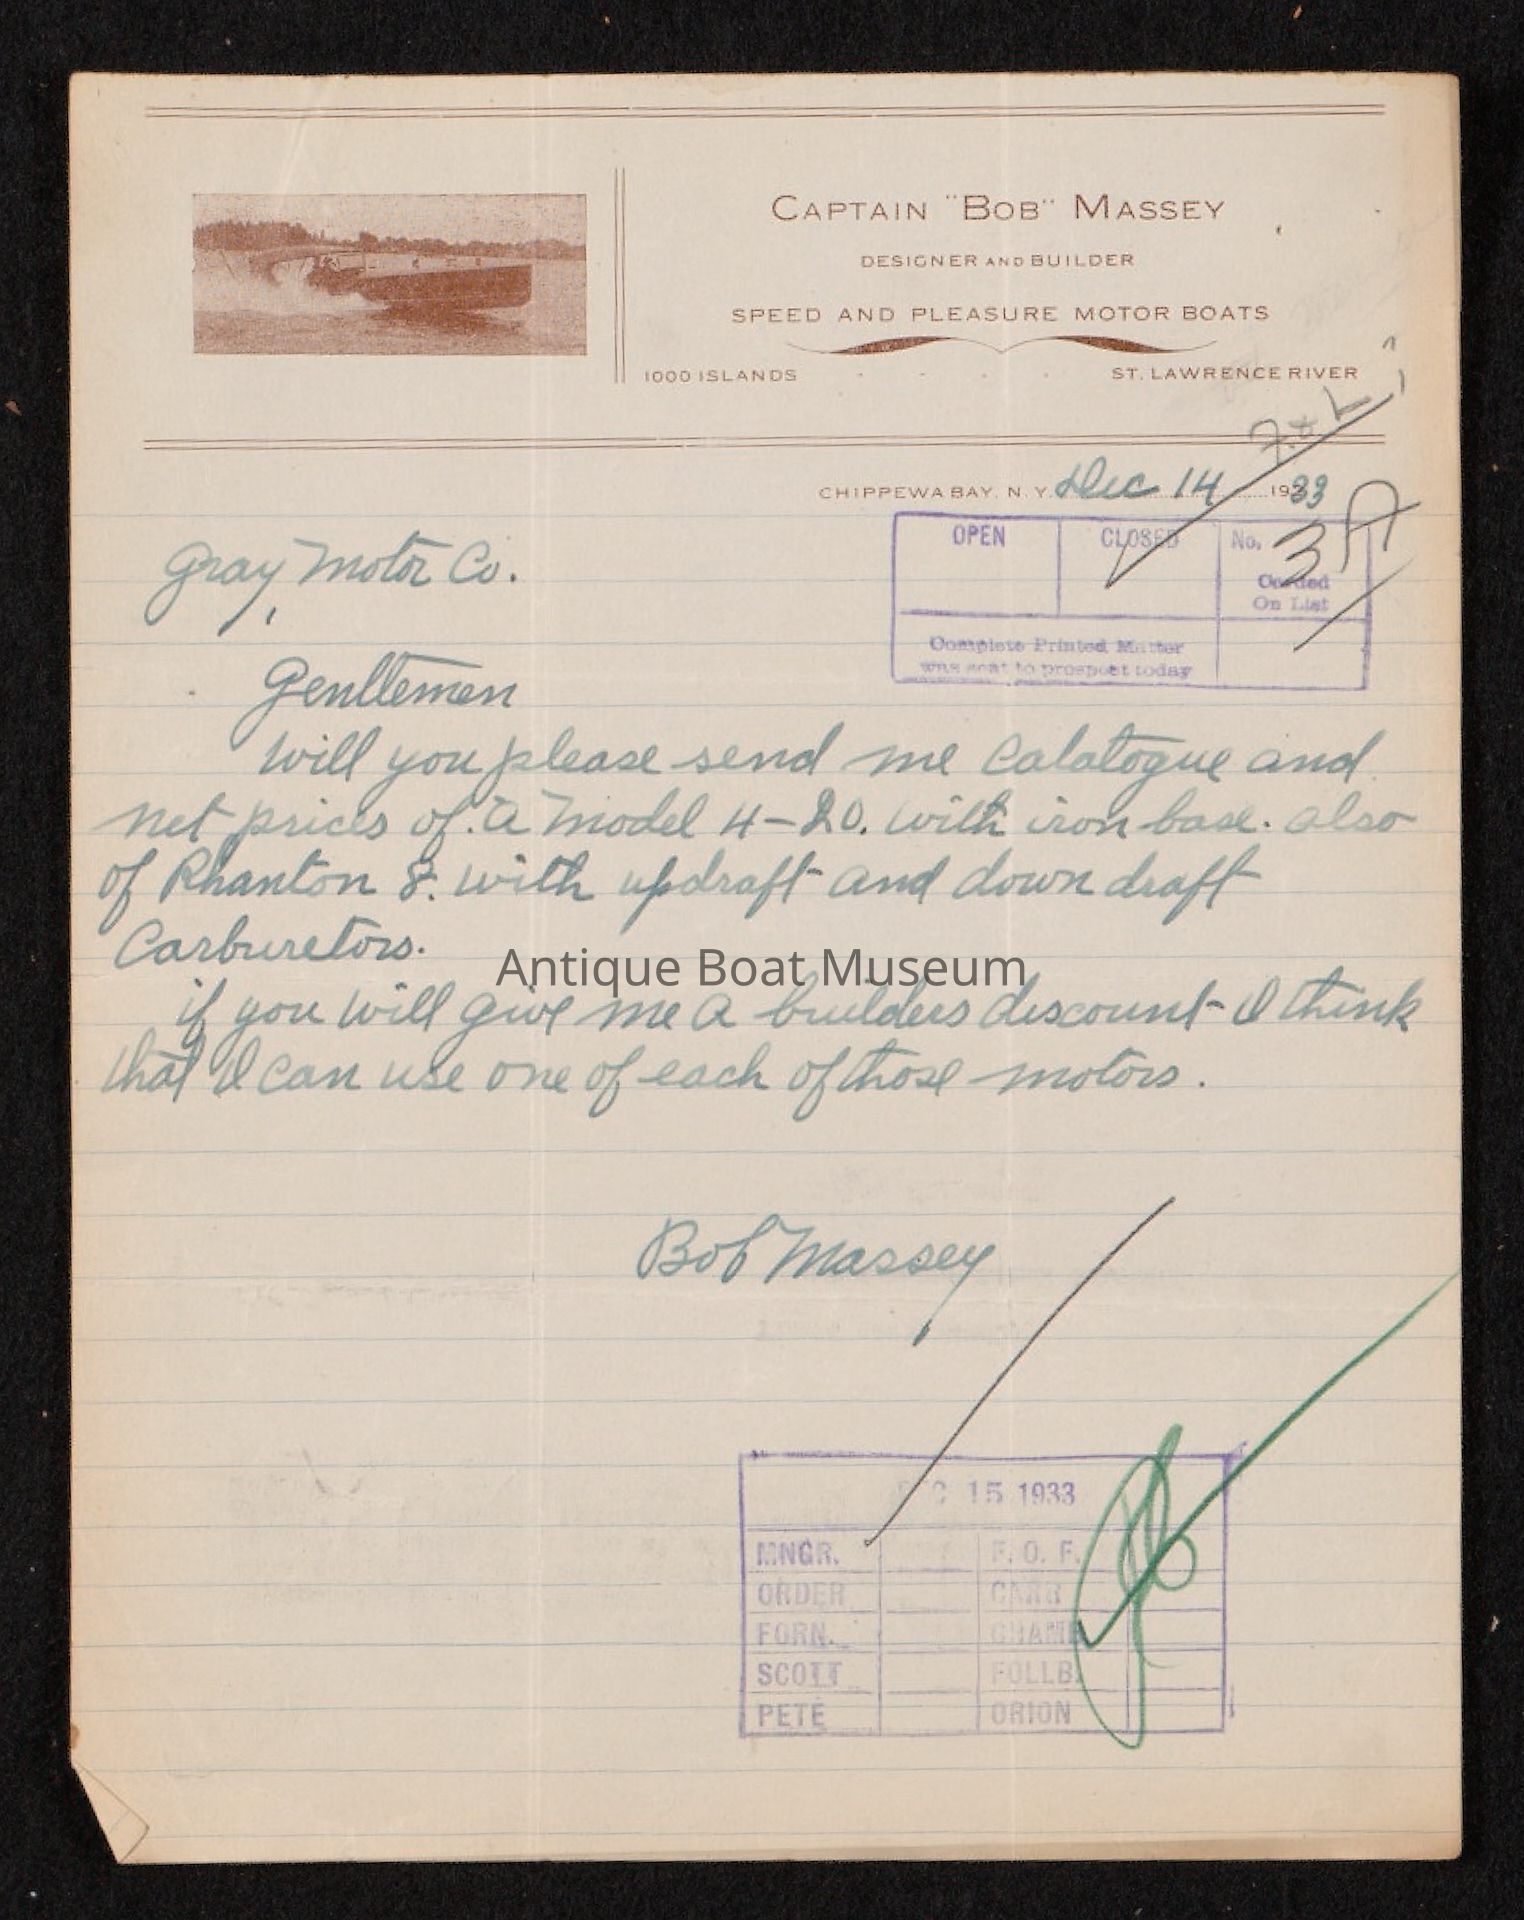 CAPTAIN "BOB" MASSEY
DESIGNER AND BUILDER
SPEED AND PLEASURE MOTOR BOATS
1000 ISLANDS ST. LAWRENCE RIVER
CHIPPEWA BAY, N. Y. Dec 14 1933
OPEN CLOSED No. 3A
Carded
On List
Complete Printed Matter
was sent to prospect today
Gray Motor Co.
Genltemen
Will you please send me Calatogue and
net prices of a Model 4-20. with iron base. also
of Phanton 8. with updraft and down draft
Carburetors.
Antique Boat Museum
if you will give me a builders discount I think
that I can use one of each of those motors.
Bob Massey
DEC 15 1933
MNGR. F. O. F.
ORDER CARR
FORN. CHAM
SCOTT FOLLB.
PETE ORION